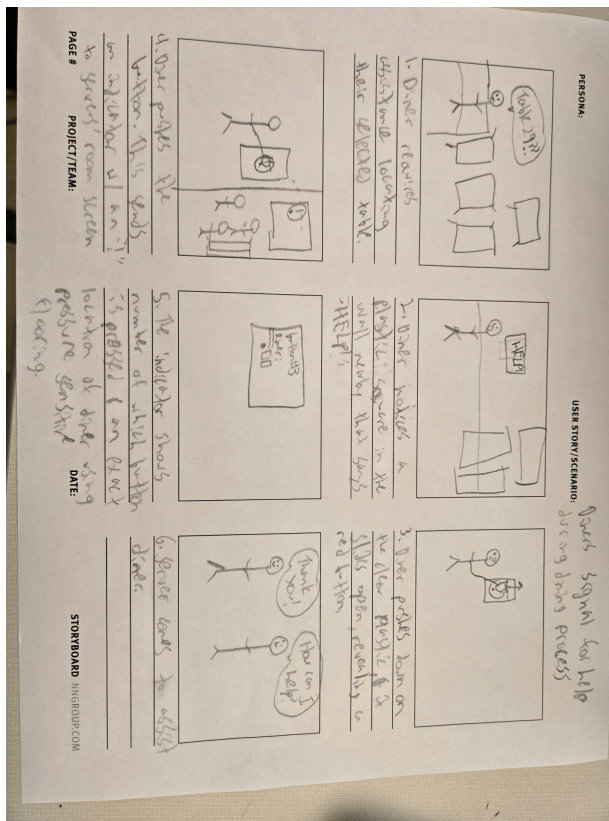 PERSONA:
USER STORY/SCENARIO:
Diners signal for help
during dining process
Table 29??
HELP!
1. Diner requires
assistance locating
their selected table.
2. Diner notices a
plastic square in the
wall nearby that says
"HELP!"
3. Diner pushes down on
the clear plastic, & it
slides open, revealing a
red button
button #3
Diner:
Thank
you!
How can I
help?
4. Diner pushes the
button. This sends
an indicator w/ an "!"
to servers' room screen
5. The indicator shows
number of which button
is pressed & an exact
location of diner using
pressure sensitive
flooring.
6. Server comes to assist
diner.
PAGE #
PROJECT/TEAM:
DATE:
STORYBOARD NNGROUP.COM